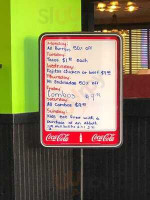 Monday:
All Burritos 50% off
Tuesday:
Tacos $1.50 each
Wednesday:
Fajitas chicken or beef $9.99
Thursday:
50% off
Friday
Combos $9.99
Saturday:
All Combos $9.99
Sunday:
Kids eat Free with a
purchase of an adult
Coca-Cola
Coca-Cola